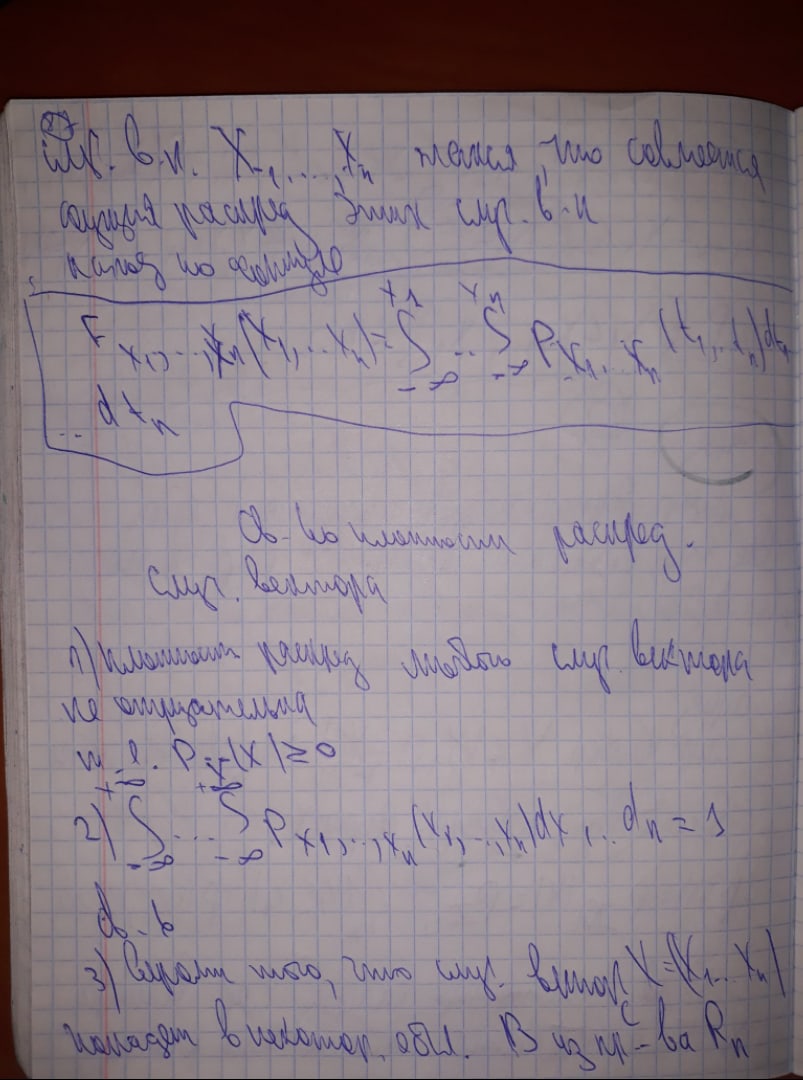 27
сл. в.п. X₁,...,Xₙ , что совместная
функция распред этих случ. в.п
наход по формуле
F X₁,...,Xₙ(X₁,...Xₙ)=∫_{-∞}^{x₁}..∫_{-∞}^{xₙ} P X₁...Xₙ (t₁,..tₙ)dt₁
..dtₙ
Св-во плотности распред.
случ. вектора
1) плотность распред любого случ. вектора
не отрицательна
т.е. P_X(X)≥0
2) ∫_{-∞}^{+∞}...∫_{-∞}^{+∞} P X₁,..,Xₙ(X₁,..,Xₙ)dX₁..dₙ=1
3) Вероят того, что случ. вектор X=(X₁...Xₙ)
попадет в некотор. обл. B из пр-ва Rₙ